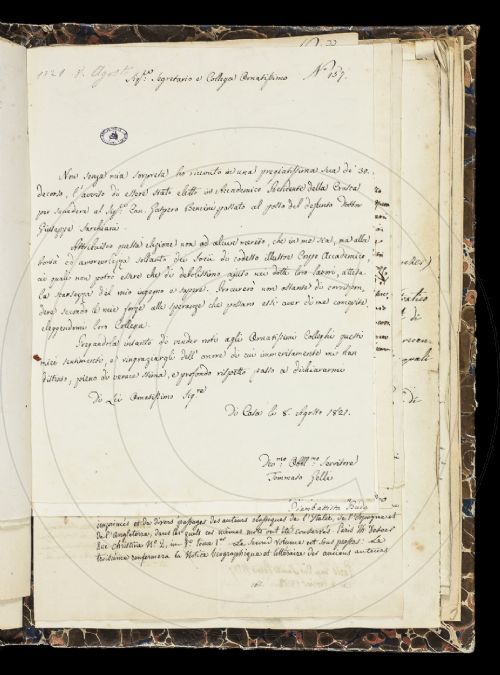 1821 8. Agosto
Sig.re Segretario e Collega Ornatissimo
N.o 157.
Non senza mia sorpresa ho ricevuto in una pregiatissima sua de' 30.
decorso, l'avviso di essere stato eletto in Accademico Residente della Crusca
per succedere al Sig.re Can. Gaspero Bencini passato al posto del defunto Dottor
Giuseppe Sarchiani.
Attribuisco questa elezione non ad alcun merito, che in me sia, ma alla
bontà ed amorevolezza soltanto dei Socii di codesto illustre Corpo Accademico,
ai quali non potrò essere che di debolissimo ajuto nei dotti loro lavori, attesa
la scarsezza del mio ingegno e sapere. Procurerò non ostante di corrispon-
dere secondo le mie forze alle speranze che possano essi aver di me concepite,
eleggendomi loro Collega.
Pregandola intanto di render noti agli Ornatissimi Colleghi questi
miei sentimenti, e ringraziargli dell'onore di cui immeritamente mi han
distinto, pieno di verace stima, e profondo rispetto passo a dichiararmi
Di Lei Ornatissimo Sig.re
Di Casa li 8. Agosto 1821.
Dev.mo Obbl.mo Servitore
Tommaso Gelli
imprimés et des divers passages des auteurs classiques de l'Italie, de l'Espagne et
de l'Angleterre, dans les quels ces mêmes mots ont été conservés. Paris
N.o 2, in 8.o Tome 1.er Le second volume est sous presse. Le
troisième renfermera la Notice biographique et littéraire des anciens auteurs